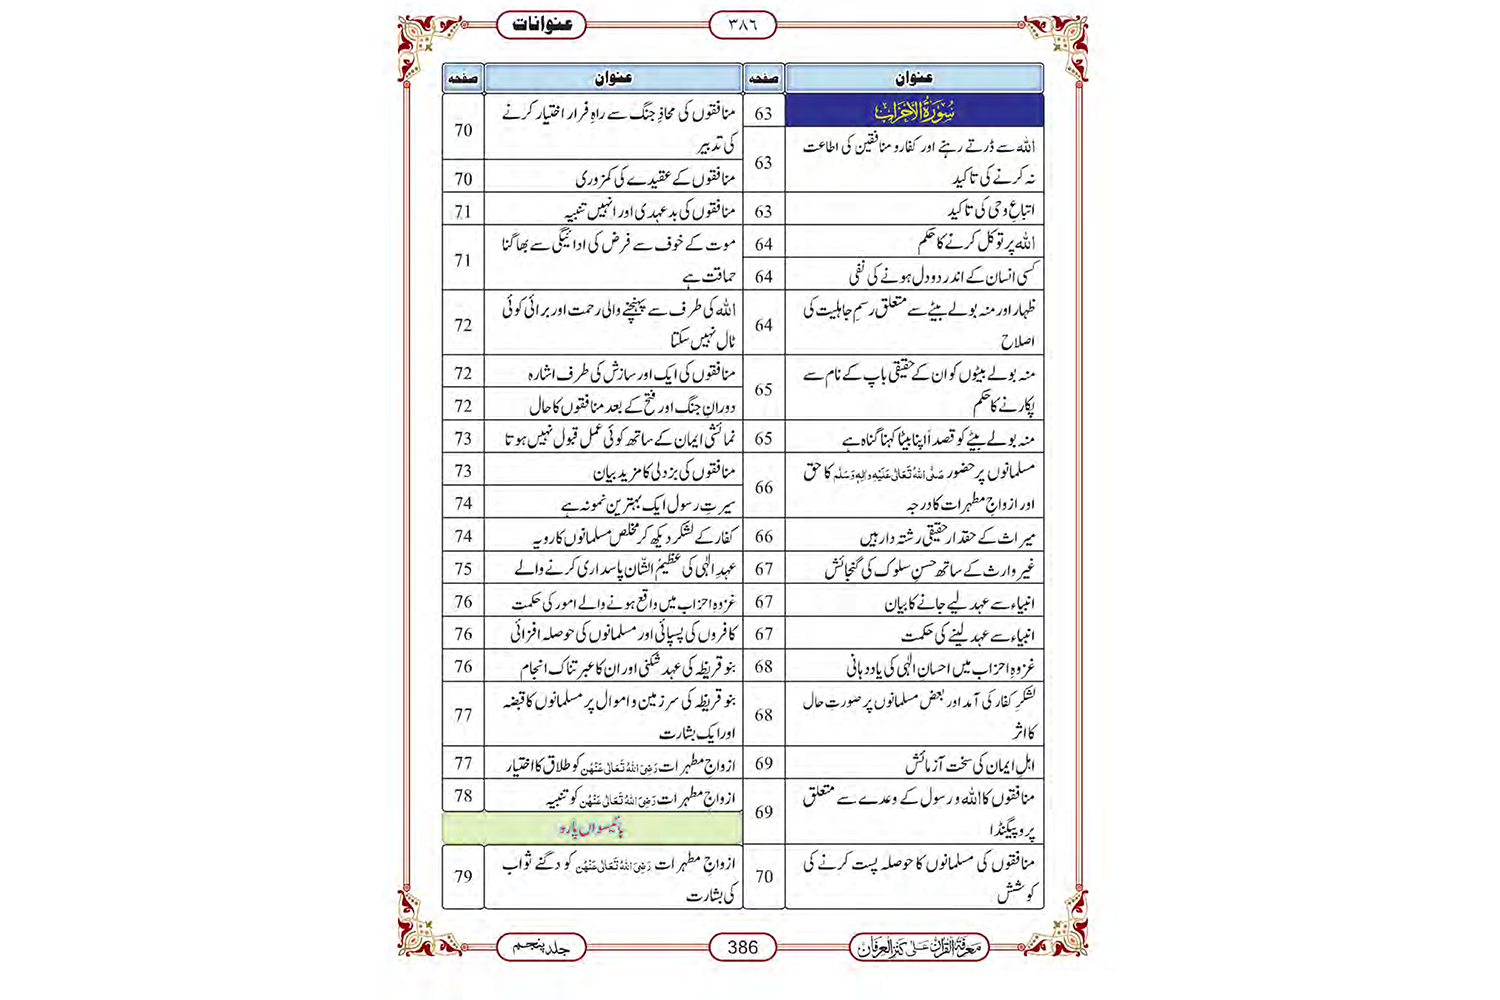 عنوانات
٣٨٦
عنوان صفحہ
سُوْرَۃُ الْاَحْزَاب 63
اللہ سے ڈرتے رہنے اور کفار و منافقین کی اطاعت
نہ کرنے کی تاکید 63
اتباعِ وحی کی تاکید 63
اللہ پر توکل کرنے کا حکم 64
کسی انسان کے اندر دو دل ہونے کی نفی 64
ظہار اور منہ بولے بیٹے سے متعلق رسمِ جاہلیت کی
اصلاح 64
منہ بولے بیٹوں کو ان کے حقیقی باپ کے نام سے
پکارنے کا حکم 65
منہ بولے بیٹے کو قصداً اپنا بیٹا کہنا گناہ ہے 65
مسلمانوں پر حضور صَلَّی اللہُ تَعَالٰی عَلَیْہِ وَاٰلِہٖ وَسَلَّم کا حق
اور ازواجِ مطہرات کا درجہ 66
میراث کے حقدار حقیقی رشتہ دار ہیں 66
غیر وارث کے ساتھ حسنِ سلوک کی گنجائش 67
انبیاء سے عہد لیے جانے کا بیان 67
انبیاء سے عہد لینے کی حکمت 67
غزوہ احزاب میں احسانِ الٰہی کی یاد دہانی 68
لشکرِ کفار کی آمد اور بعض مسلمانوں پر صورتِ حال
کا اثر 68
اہلِ ایمان کی سخت آزمائش 69
منافقوں کا اللہ و رسول کے وعدے سے متعلق
پروپیگنڈا 69
منافقوں کی مسلمانوں کا حوصلہ پست کرنے کی
کوشش 70
عنوان صفحہ
منافقوں کی محاذِ جنگ سے راہِ فرار اختیار کرنے
کی تدبیر 70
منافقوں کے عقیدے کی کمزوری 70
منافقوں کی بدعہدی اور انہیں تنبیہ 71
موت کے خوف سے فرض کی ادائیگی سے بھاگنا
حماقت ہے 71
اللہ کی طرف سے پہنچنے والی رحمت اور برائی کوئی
ٹال نہیں سکتا 72
منافقوں کی ایک اور سازش کی طرف اشارہ 72
دورانِ جنگ اور فتح کے بعد منافقوں کا حال 72
نمائشی ایمان کے ساتھ کوئی عمل قبول نہیں ہوتا 73
منافقوں کی بزدلی کا مزید بیان 73
سیرتِ رسول ایک بہترین نمونہ ہے 74
کفار کے لشکر دیکھ کر مخلص مسلمانوں کا رویہ 74
عہدِ الٰہی کی عظیمُ الشّان پاسداری کرنے والے 75
غزوہِ احزاب میں واقع ہونے والے امور کی حکمت 76
کافروں کی پسپائی اور مسلمانوں کی حوصلہ افزائی 76
بنو قریظہ کی عہد شکنی اور ان کا عبرتناک انجام 76
بنو قریظہ کی سرزمین و اموال پر مسلمانوں کا قبضہ
اور ایک بشارت 77
ازواجِ مطہرات رَضِیَ اللہُ تَعَالٰی عَنْہُن کو طلاق کا اختیار 77
ازواجِ مطہرات رَضِیَ اللہُ تَعَالٰی عَنْہُن کو تنبیہ 78
بائیسواں پارہ
ازواجِ مطہرات رَضِیَ اللہُ تَعَالٰی عَنْہُن کو دگنے ثواب
کی بشارت 79
معرفۃ القرآن علٰی کنز العرفان
386
جلد پنجم